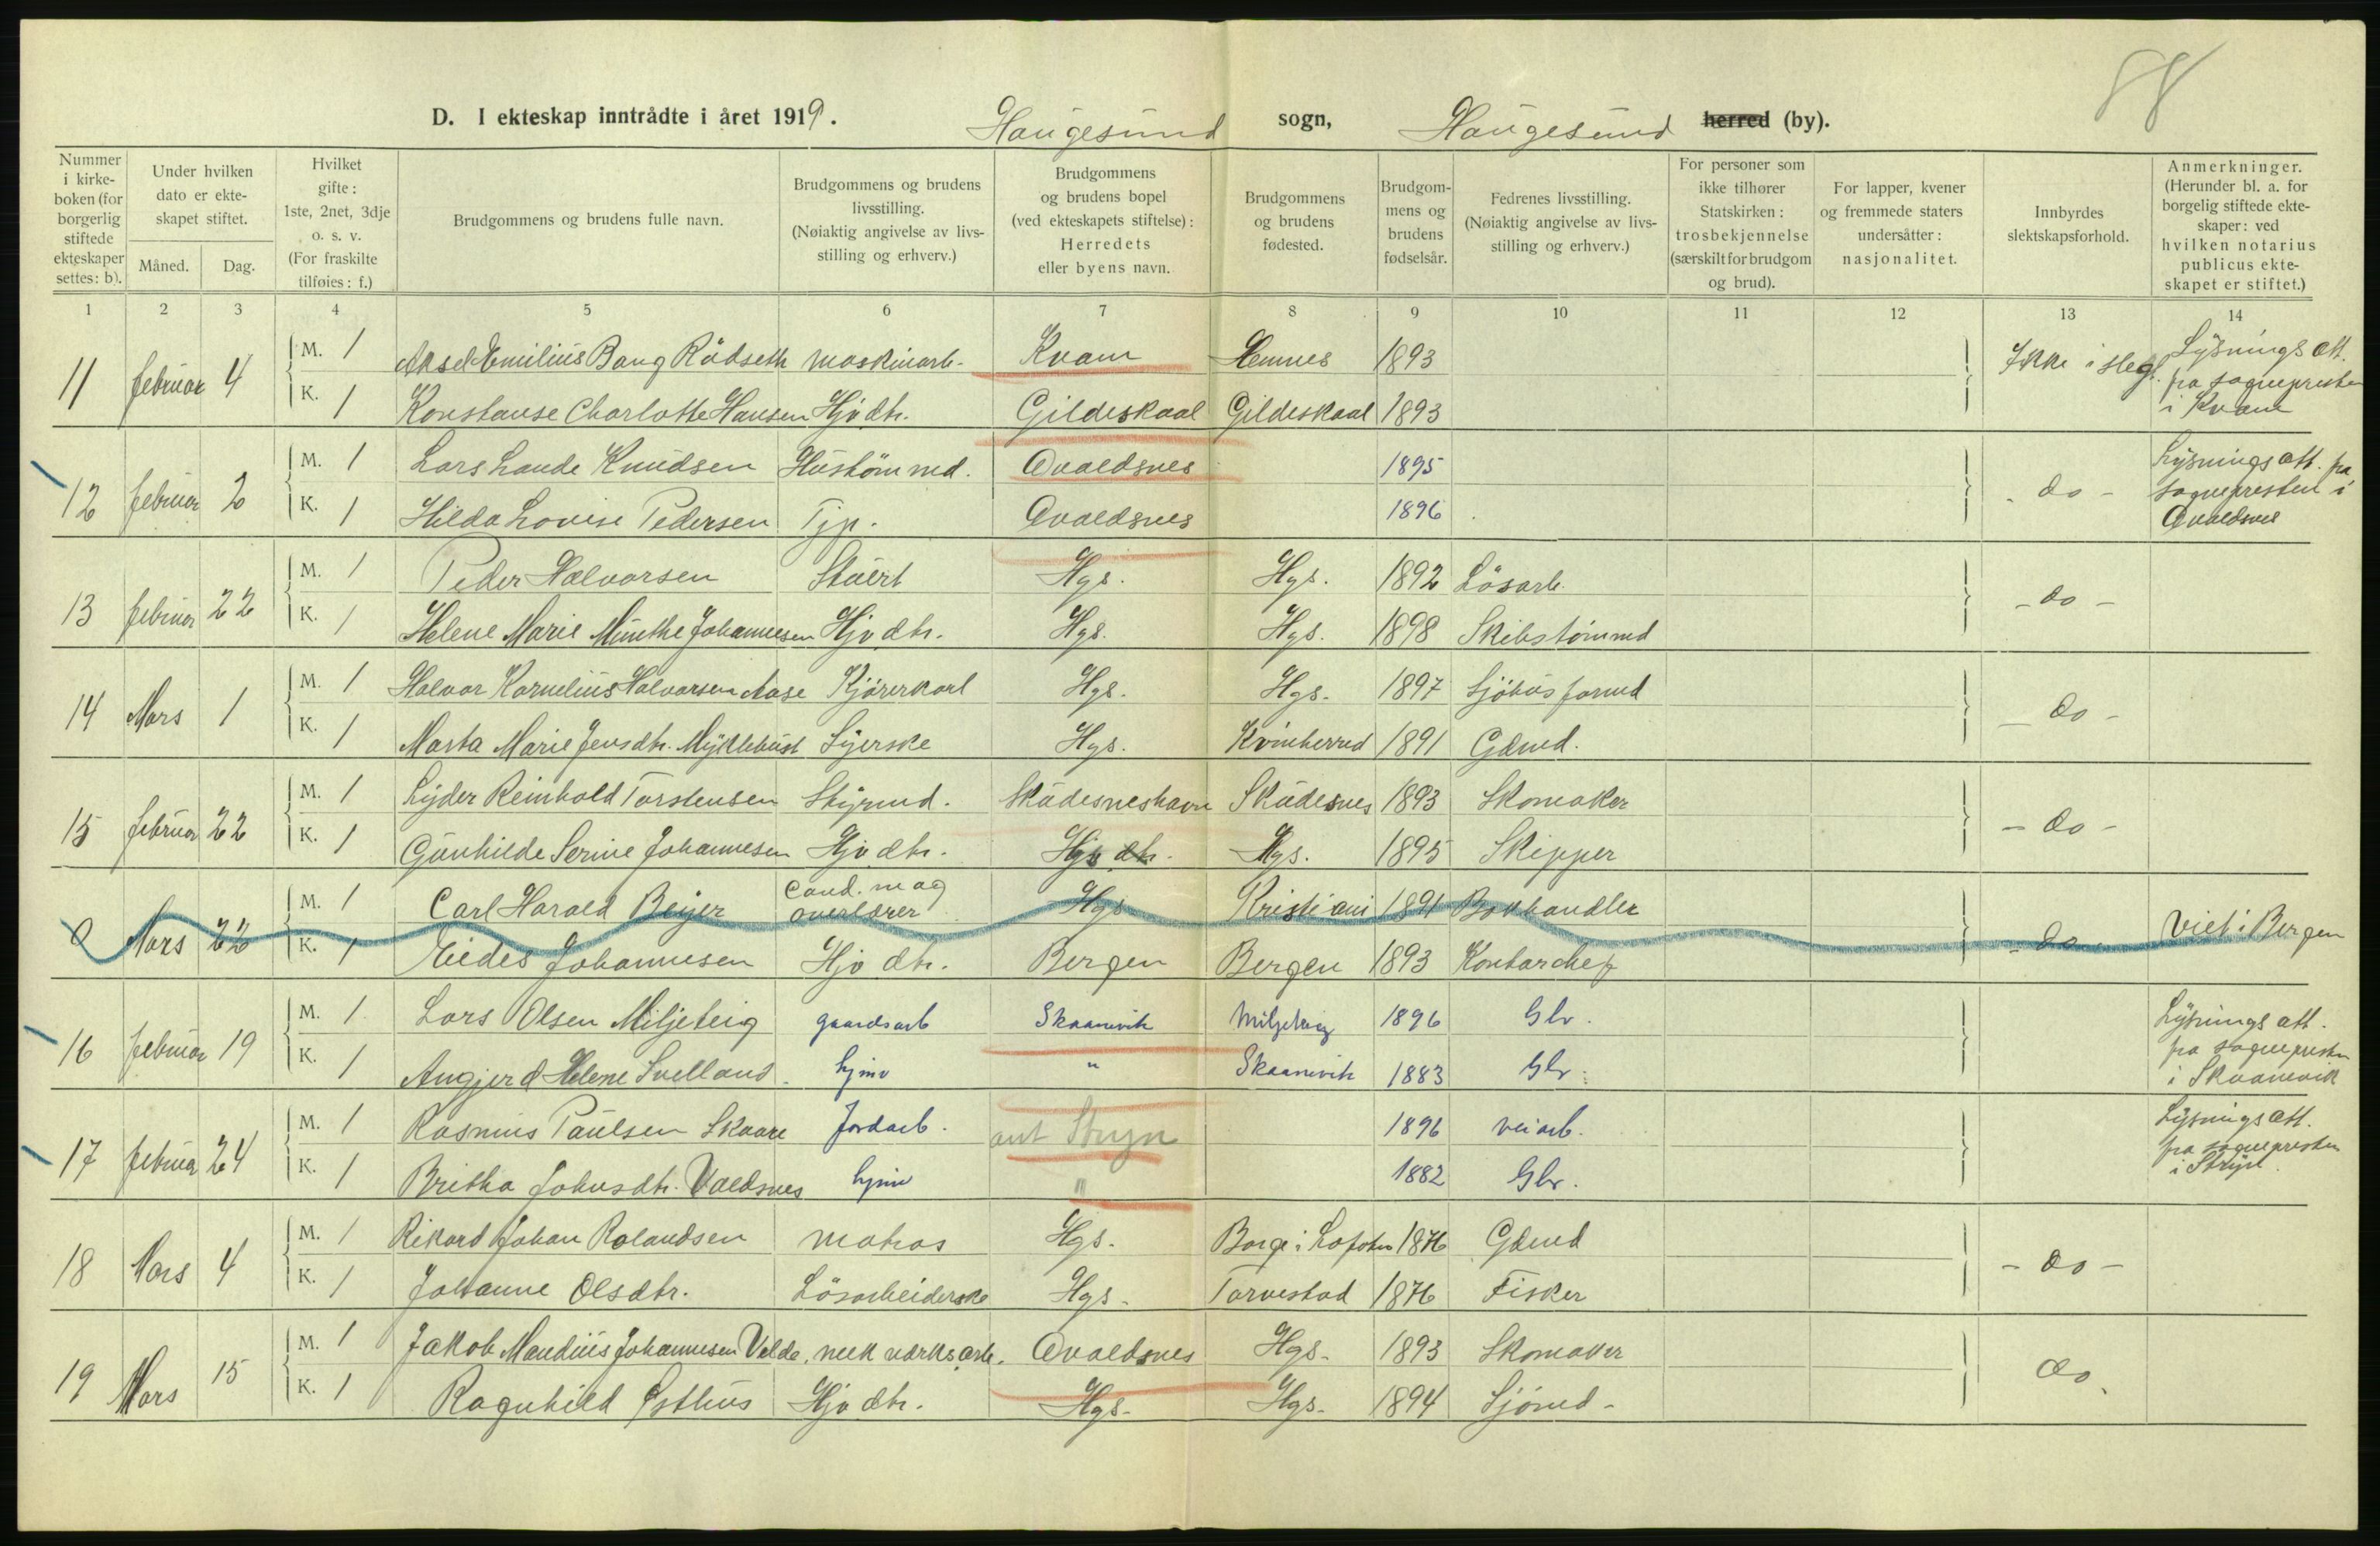 88
D. I ekteskap inntrådte i året 1919. Haugesund sogn, Haugesund herred (by).
Nummer i kirke-boken (for borgerlig stiftede ekteskaper settes: b).
Under hvilken dato er ekte-skapet stiftet.
Måned. Dag.
Hvilket gifte: 1ste, 2net, 3dje o. s. v. (For fraskilte tilføies: f.)
Brudgommens og brudens fulle navn.
Brudgommens og brudens livsstilling. (Nøiaktig angivelse av livs-stilling og erhverv.)
Brudgommens og brudens bopel (ved ekteskapets stiftelse): Herredets eller byens navn.
Brudgommens og brudens fødested.
Brudgom-mens og brudens fødselsår.
Fedrenes livsstilling. (Nøiaktig angivelse av livs-stilling og erhverv.)
For personer som ikke tilhører Statskirken: trosbekjennelse (særskilt for brudgom og brud).
For lapper, kvener og fremmede staters undersåtter: nasjonalitet.
Innbyrdes slektskapsforhold.
Anmerkninger. (Herunder bl. a. for borgelig stiftede ekte-skaper: ved hvilken notarius publicus ekte-skapet er stiftet.)
1 2 3 4 5 6 7 8 9 10 11 12 13 14
11 februar 4 M. 1 Aksel Emilius Bang Rödseth maskinarb. Kvam Hemnes 1893 Ikke i slegt. Lysningsatt. fra sognepresten i Kvam
K. 1 Konstanse Charlotte Hansen Hjv dtr. Gildeskaal Gildeskaal 1893
12 februar 2 M. 1 Lars Lande Knudsen Hustömmd. Avaldsnes 1895 - do - Lysningsatt. fra sognepresten i Avaldsnes
K. 1 Hilda Lovise Pedersen Tjp. Avaldsnes 1896
13 februar 22 M. 1 Peder Halvorsen Stuert Hgs. Hgs. 1892 Lösarb. - do -
K. 1 Helene Marie Munthe Johannesen Hjv dtr. Hgs. Hgs. 1898 Skibstömmd
14 Mars 1 M. 1 Halvor Kornelius Halvorsen Aase Kjörerkarl Hgs. Hgs. 1897 Sjöhusformd - do -
K. 1 Marta Marie Jensdtr. Myklebust Syerske Hgs. Kvinherred 1891 Gdmd.
15 februar 22 M. 1 Lyder Reinhold Torstensen Styrmd. Skudesneshavn Skudesnes 1893 Skomaker - do -
K. 1 Gunhilde Serine Johannesen Hjv dtr. Hgs. Hgs. 1895 Skipper
0 Mars 22 M. 1 Carl Harald Beijer Cand. mag overlærer Hgs Kristiani 1891 Bokhandler - do - Viet i Bergen
K. 1 Johannesen Hjv dtr. Bergen Bergen 1893 Kontorchef
16 februar 19 M. 1 Lars Olsen Miljeteig gaardsarb Skaanevik Miljeteig 1896 Gbr. Lysningsatt. fra sognepresten i Skaanevik
K. 1 Angjerd Helene Svelland. hjmv " Skaanevik 1883 Gbr.
17 februar 24 M. 1 Rasmus Paulsen Skaare Jordarb. ant Stryn 1896 veiarb. Lysningsatt. fra sognepresten i Stryn.
K. 1 Britha Johnsdtr. Valdsnes hjmv " 1882 Gbr.
18 Mars 4 M. 1 Rikard Johan Rolandsen matros Hgs. Borge i Lofoten 1876 Gdmd - do -
K. 1 Johanne Olsdtr. Lösarbeiderske Hgs. Torvestad 1876 Fisker
19 Mars 15 M. 1 Jakob Mandius Johannesen Velde. mek verksarb. Avaldsnes Hgs. 1893 Skomaker do.
K. 1 Ragnhild Østhus Hjv dtr. Hgs. Hgs. 1894 Sjömd.